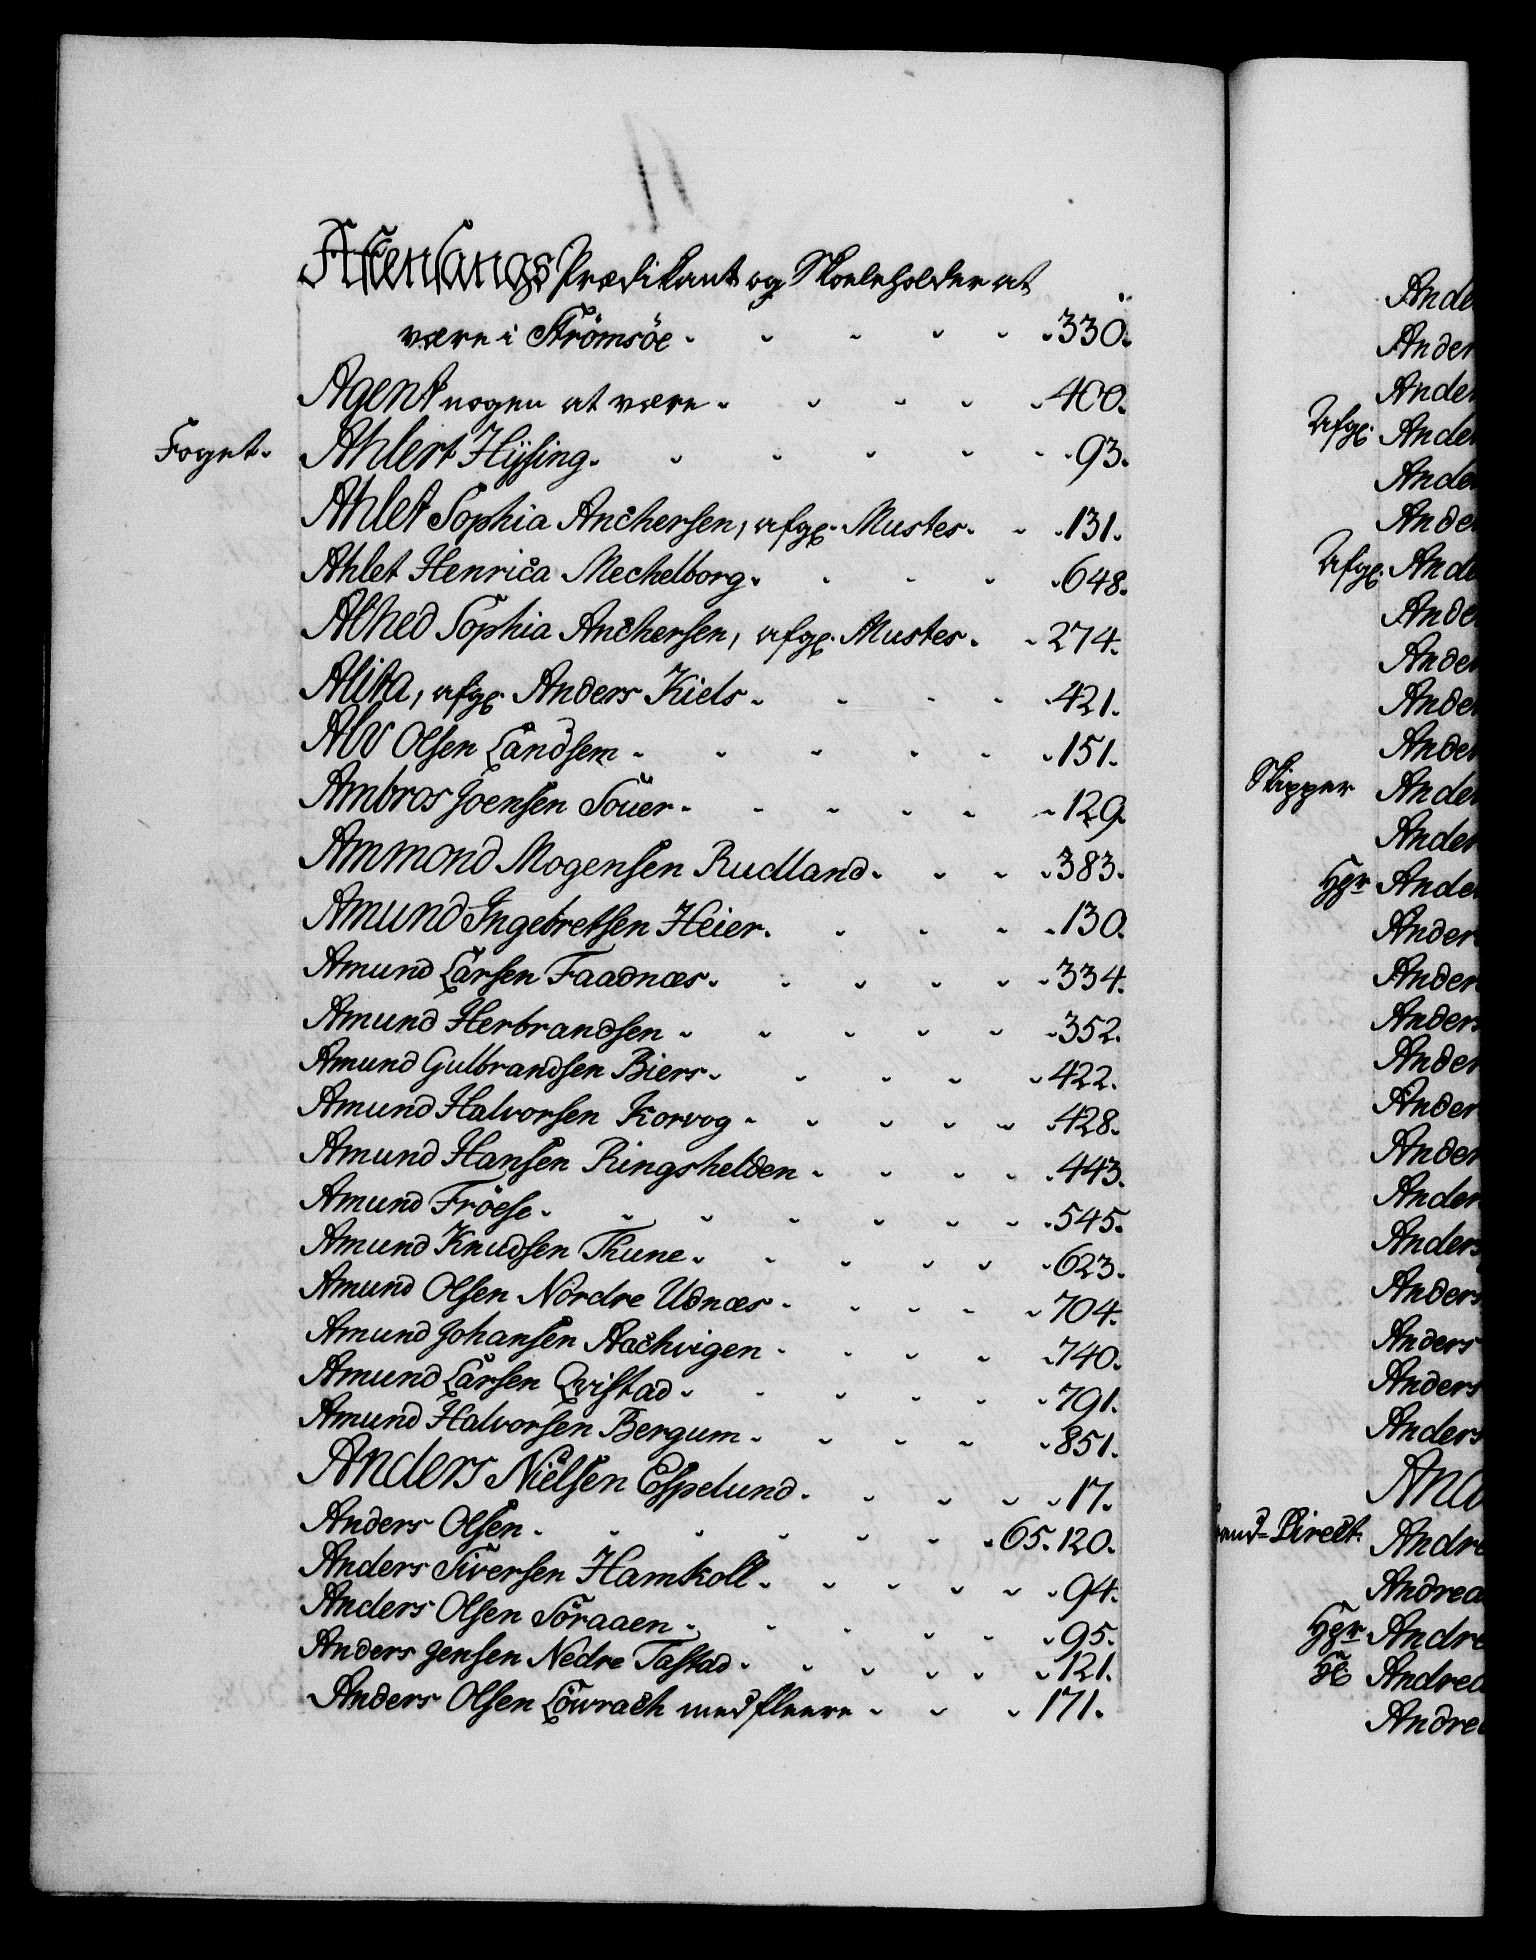 Aftensangs Prædikant og Skoeleholder at
være i Strömsöe. 330.
Agent nogen at være. 400.
Foget. Ahlert Hÿsing. 93.
Ahlet Sophia Anchersen, afg: Mustes. 131.
Ahlet Henrica Mechelborg. 648.
Alhed Sophia Anchersen, afg: Mustes. 274.
Alita, afg: Anders Kiels. 421.
Alv Olsen Landsem. 151.
Ambros Joensen Souer. 129.
Ammond Mogensen Rudland. 383.
Amund Ingebretsen Heier. 130.
Amund Larsen Faadnæs. 334.
Amund Herbrandsen. 352.
Amund Gulbrandsen Biers. 422.
Amund Halvorsen Korvog. 428.
Amund Hansen Ringshelden. 443.
Amund Fröese. 545.
Amund Knudsen Thune. 623.
Amund Olsen Nordre Udnæs. 704.
Amund Johansen Aachvigen. 740.
Amund Larsen Qvistad. 791.
Amund Halvorsen Bergum. 851.
Anders Nielsen Espelund. 17.
Anders Olsen. 65. 120.
Anders Siversen Hamkoll. 94.
Anders Olsen Söraaen. 95.
Anders Jensen Nedre Tastad. 121.
Anders Olsen Löwrach med fleere. 171.
Ande
Ander
Ander
Afg: Ander
Ander
Ander
Afg: Ande
Ander
Ander
Ander
Ander
Skipper Ander
Ander
Hgr Ander
Ander
Ander
Anders
Ander
Ander
Ander
Ander
Anders
Anders
Anders
Anders
Anders
And
and-Direct. Andre
Andrea
Hgr Andre
Andrea
Andrea